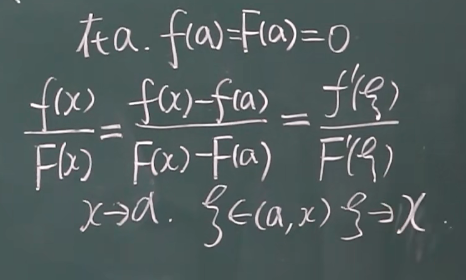 在a. f(a)=F(a)=0
f(x)/F(x) = (f(x)-f(a))/(F(x)-F(a)) = f'(ξ)/F'(ξ)
x→a. ξ∈(a,x) ξ→x.